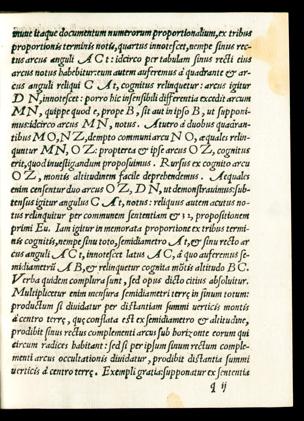 iuuat itaque documentum numerorum proportionalium, ex tribus
proportionis terminis notis, quartus innotescet, nempe sinus rec-
tus arcus anguli A C t: idcirco per tabulam sinus recti eius
arcus notus habebitur: eum autem auferemus à quadrante & ar-
cus anguli reliqui C A t, cognitus relinquetur: arcus igitur
D N, innotescet: porro hic insensibili differentia excedit arcum
M N, quippe quod e, prope B, sit aut in ipso B, ut supponi-
mus: idcirco arcus M N, notus. At uero à duobus quadran-
tibus M O, N Z, dempto communi arcu N O, æquales relin-
quuntur M N, O Z: propterea & ipse arcus O Z, cognitus
erit, quod inuestigandum proposuimus. Rursus ex cognito arcu
O Z, montis altitudinem facile deprehendemus. Aequales
enim censentur duo arcus O Z, D N, ut demonstrauimus: sub-
tensus igitur angulus C A t, notus: reliquus autem acutus no-
tus relinquitur per communem sententiam & 32, propositionem
primi Eu. Iam igitur in memorata proportione ex tribus termi-
nis cognitis, nempe sinu toto, semidiametro A t, & sinu recto ar
cus anguli A C t, innotescet latus A C, à quo auferemus se-
midiametrũ A B, & relinquetur cognita mõtis altitudo B C.
Verba quidem complura sunt, sed opus dicto citius absoluitur.
Multiplicetur enim mensura semidiametri terrę in sinum totum:
productum si diuidatur per distantiam summi uerticis montis
à centro terrę, quę conflata est ex semidiametro & altitudine,
prodibit sinus rectus complementi arcus sub horizonte eorum qui
circum radices habitant: sed si per ipsum sinum rectum comple-
menti arcus occultationis diuidatur, prodibit distantia summi
uerticis à centro terrę. Exempli gratia: supponatur ex sententia
q ij